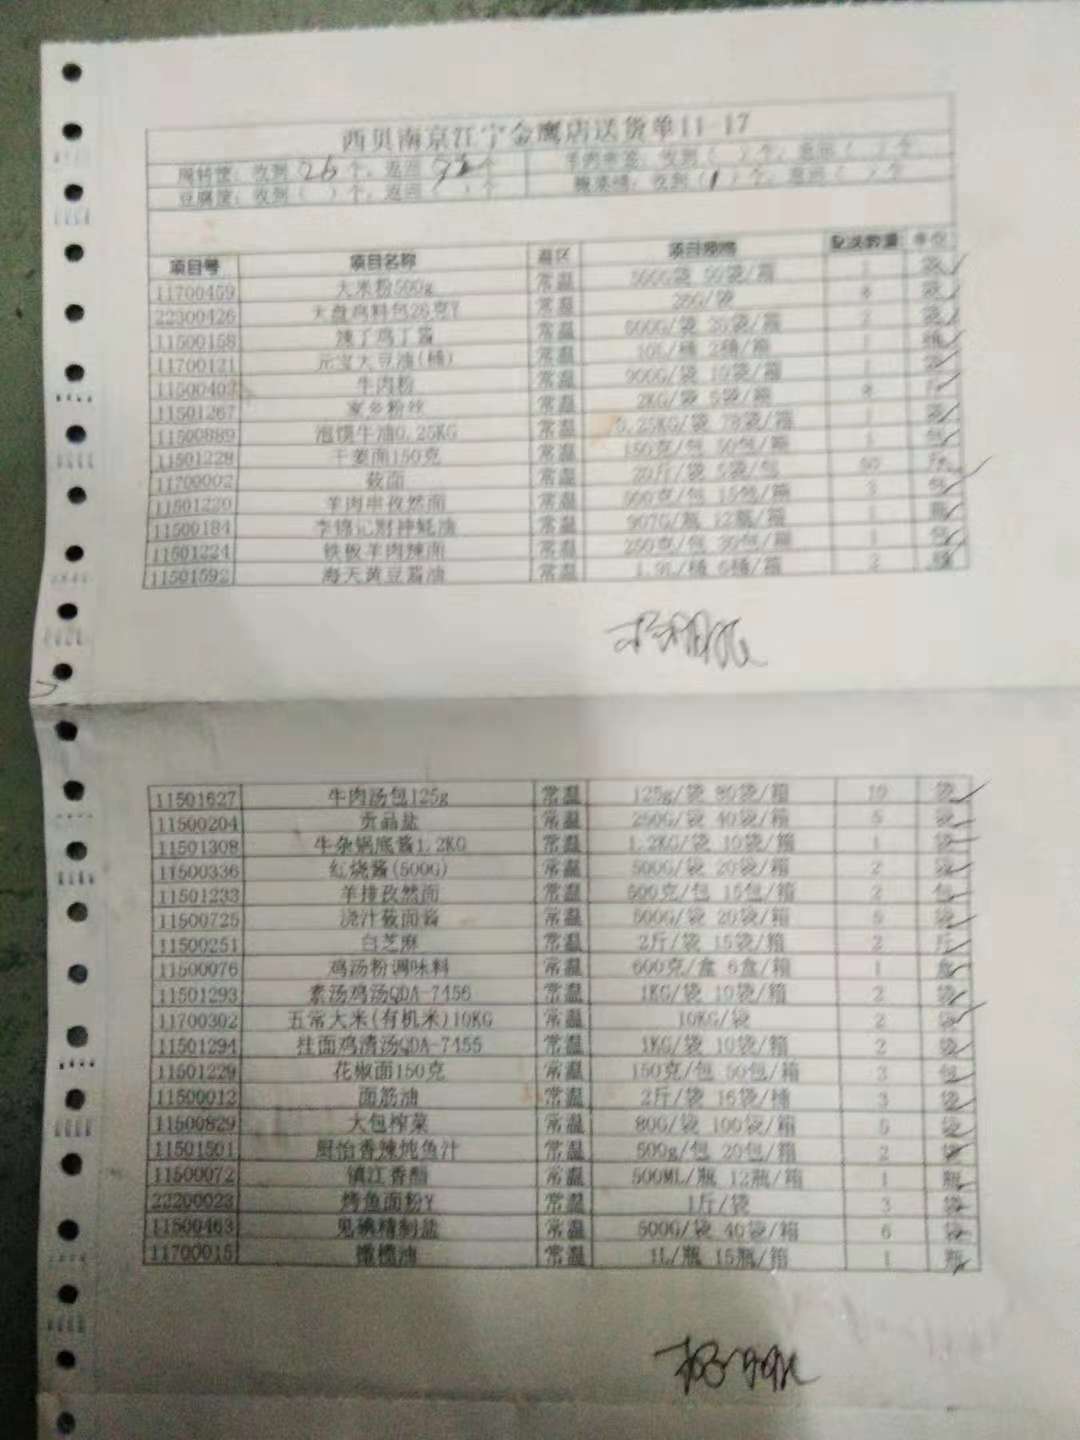 西贝南京江宁金鹰店送货单11-17
周转筐：收到 26 个，返回 个 羊肉串筐：收到（ ）个，返回（ ）个
豆腐筐：收到（ ）个，返回（ ）个 收到（1）个，返回（ ）个
项目号 项目名称 温区 项目规格 配送数量 单位
11700459 大米粉500g 常温 500G袋 50袋/箱 1 袋
22300426 大盘鸡料包26克Y 常温 26G/袋 8 袋
11500158 辣丁鸡丁酱 常温 500G/袋 20袋/箱 2 袋
11700121 元宝大豆油(桶) 常温 10L/桶 2桶/箱 1 桶
11500403 牛肉粉 常温 900G/袋 10袋/箱 1 袋
11501267 家乡粉丝 常温 2KG/袋 5袋/箱 8 斤
11500889 泡馍牛油0.25KG 常温 0.25KG/袋 78袋/箱 1 袋
11501228 干姜面150克 常温 150克/包 50包/箱 1 包
11700002 莜面 常温 20斤/袋 5袋/包 50 斤
11501220 羊肉串孜然面 常温 500克/包 15包/箱 3 包
11500184 李锦记财神蚝油 常温 907G/瓶 12瓶/箱 1 瓶
11501224 铁板羊肉辣面 常温 250克/包 30包/箱 1 包
11501592 海天黄豆酱油 常温 1.9L/桶 6桶/箱 2 桶
11501627 牛肉汤包125g 常温 125g/袋 80袋/箱 10 袋
11500204 贡品盐 常温 250G/袋 40袋/箱 5 袋
11501308 牛杂锅底酱1.2KG 常温 1.2KG/袋 10袋/箱 1 袋
11500336 红烧酱(500G) 常温 500G/袋 20袋/箱 2 袋
11501233 羊排孜然面 常温 500克/包 15包/箱 2 包
11500725 浇汁莜面酱 常温 500G/袋 20袋/箱 5 袋
11500251 白芝麻 常温 2斤/袋 15袋/箱 2 斤
11500076 鸡汤粉调味料 常温 600克/盒 6盒/箱 1 盒
11501293 素汤鸡汤QDA-7456 常温 1KG/袋 10袋/箱 2 袋
11700302 五常大米(有机米)10KG 常温 10KG/袋 2 袋
11501294 挂面鸡清汤QDA-7455 常温 1KG/袋 10袋/箱 2 袋
11501229 花椒面150克 常温 150克/包 50包/箱 3 包
11500012 面筋油 常温 2斤/袋 16袋/桶 3 袋
11500829 大包榨菜 常温 80G/袋 100袋/箱 5 袋
11501501 厨怡香辣炖鱼汁 常温 500g/包 20包/箱 2 袋
11500072 镇江香醋 常温 500ML/瓶 12瓶/箱 1 瓶
22200023 烤鱼面粉Y 常温 1斤/袋 3 袋
11500463 免碘精制盐 常温 500G/袋 40袋/箱 6 袋
11700015 橄榄油 常温 1L/瓶 15瓶/箱 1 瓶